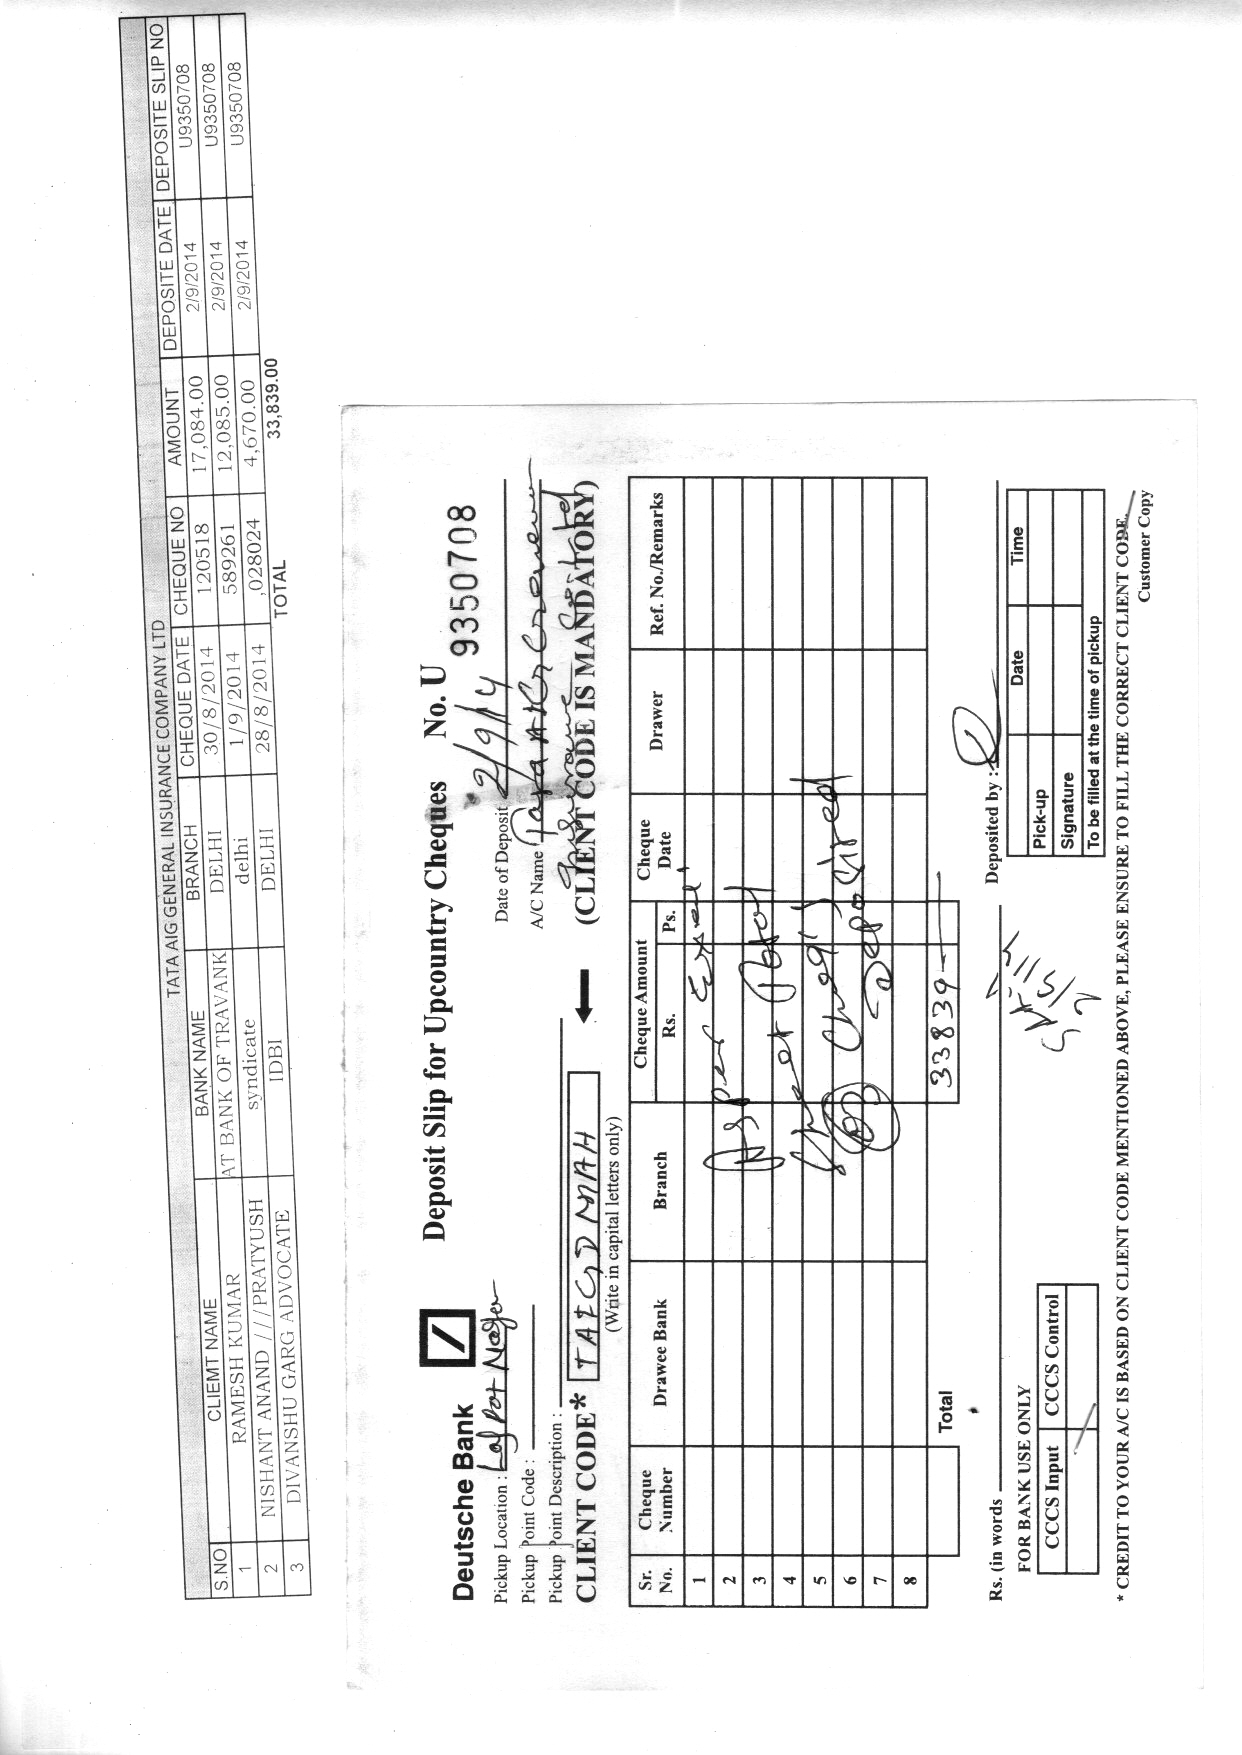 TATA AIG GENERAL INSURANCE COMPANY LTD
S.NO CLIEMT NAME BANK NAME BRANCH CHEQUE DATE CHEQUE NO AMOUNT DEPOSITE DATE DEPOSITE SLIP NO
1 RAMESH KUMAR AT BANK OF TRAVANK DELHI 30/8/2014 120518 17,084.00 2/9/2014 U9350708
2 NISHANT ANAND ///PRATYUSH syndicate delhi 1/9/2014 589261 12,085.00 2/9/2014 U9350708
3 DIVANSHU GARG ADVOCATE IDBI DELHI 28/8/2014 ,028024 4,670.00 2/9/2014 U9350708
TOTAL 33,839.00
Deutsche Bank Deposit Slip for Upcountry Cheques No. U 9350708
Pickup Location : Lajpat Nagar Date of Deposit 2/9/14
Pickup Point Code : A/C Name Tata AIG General
Pickup Point Description : Insurance Co Ltd
CLIENT CODE* TAEGDMAH (CLIENT CODE IS MANDATORY)
(Write in capital letters only)
Sr. No. Cheque Number Drawee Bank Branch Cheque Amount Rs. Ps. Cheque Date Drawer Ref. No./Remarks
1
2 As per Excel
3
4 Sheet
5
6 03 Chq's
7 Deposited
8
Total 33839
Rs. (in words Deposited by :
FOR BANK USE ONLY
CCCS Input CCCS Control
Date Time
Pick-up
Signature
To be filled at the time of pickup
* CREDIT TO YOUR A/C IS BASED ON CLIENT CODE MENTIONED ABOVE, PLEASE ENSURE TO FILL THE CORRECT CLIENT CODE.
Customer Copy